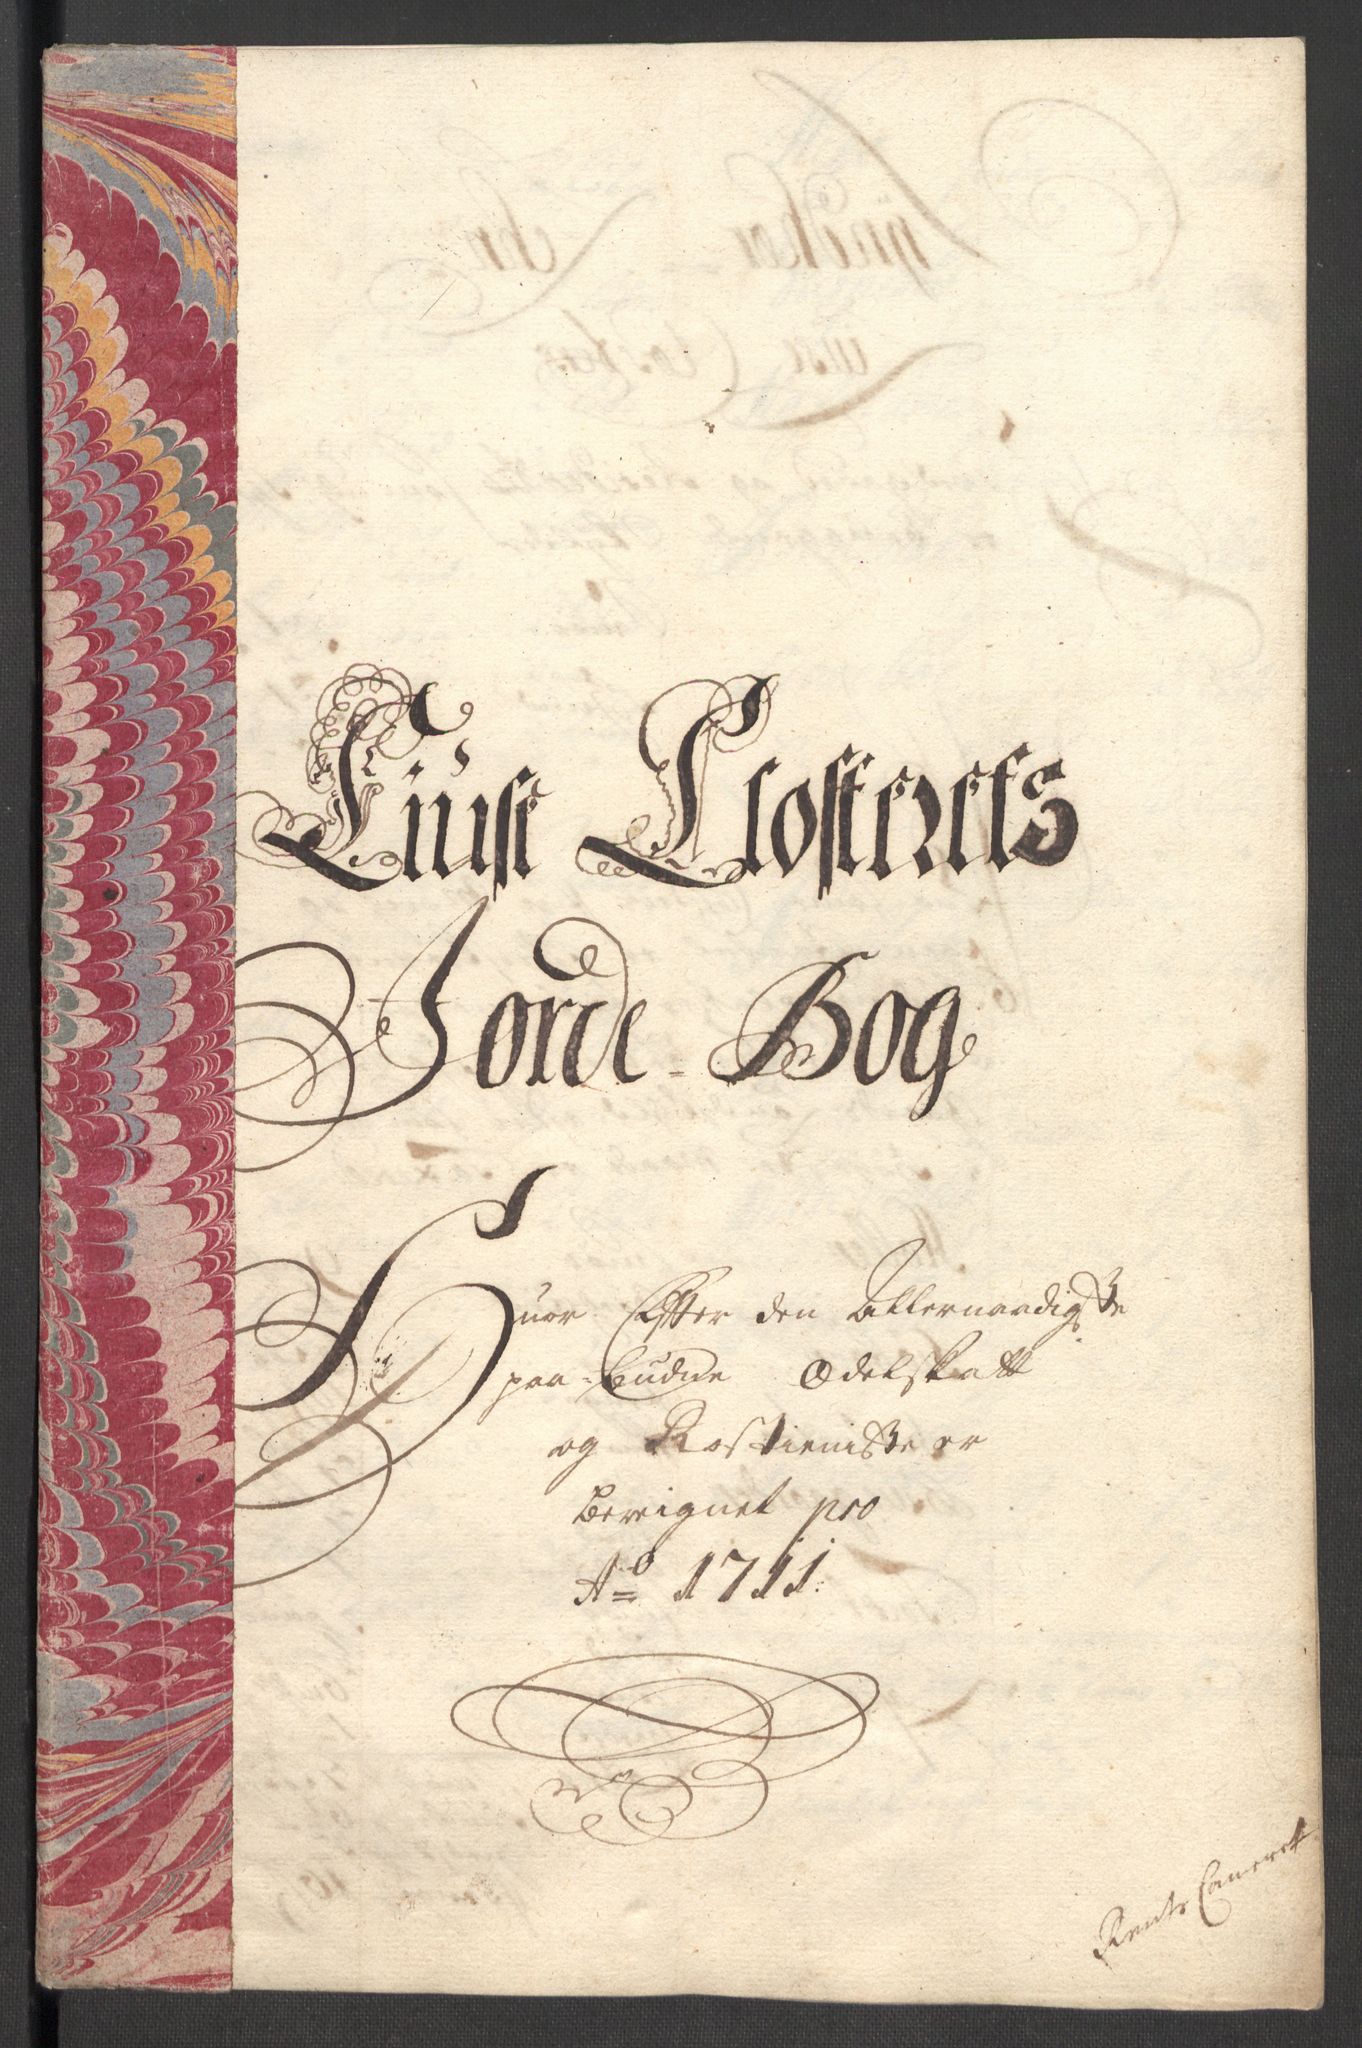 Liuse Closterets
Jorde-Bog
Huor Effter den Allernaadigste
paa-budne Odelskatt
og Rostieniste er
bereignet pro
Ao 1711.
Rente Cameret